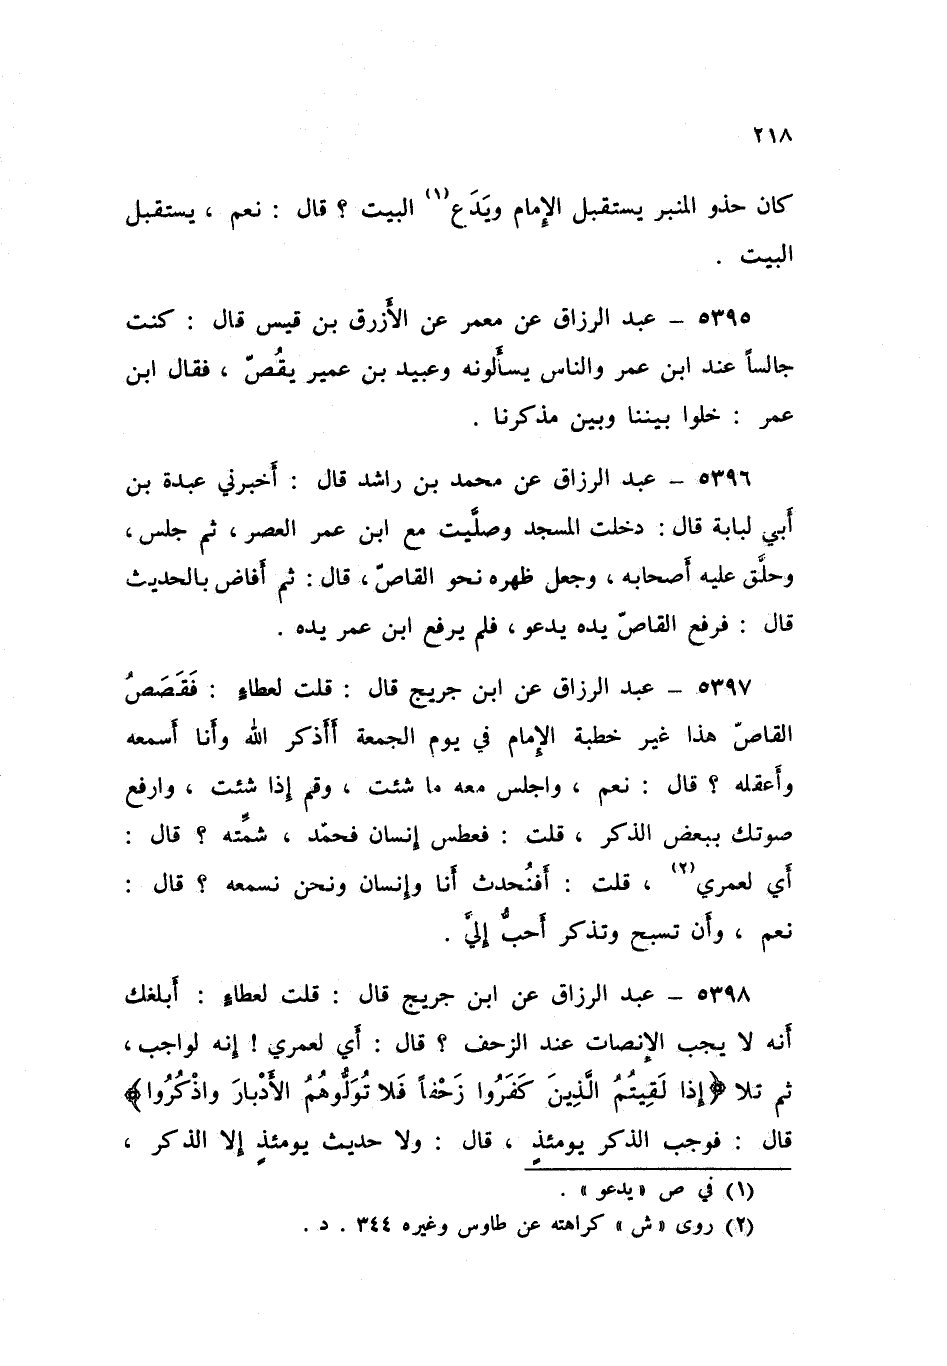 ٢١٨
كان حذو المنبر يستقبل الإمام ويَدَع(١) البيت ؟ قال : نعم ، يستقبل
البيت .
٥٣٩٥ – عبد الرزاق عن معمر عن الأَزرق بن قيس قال : كنت
جالساً عند ابن عمر والناس يسأَلونه وعبيد بن عمير يقُصّ ، فقال ابن
عمر : خلوا بيننا وبين مذكرنا .
٥٣٩٦ – عبد الرزاق عن محمد بن راشد قال : أَخبرني عبدة بن
أَبي لبابة قال : دخلت المسجد وصلَّيت مع ابن عمر العصر ، ثم جلس ،
وحلَّق عليه أَصحابه ، وجعل ظهره نحو القاصّ ، قال : ثم أَفاض بالحديث
قال : فرفع القاصّ يده يدعو ، فلم يرفع ابن عمر يده .
٥٣٩٧ – عبد الرزاق عن ابن جريج قال : قلت لعطاءٍ : فَقَصَصُ
القاصّ هذا غير خطبة الإمام في يوم الجمعة أَأَذكر الله وأَنا أَسمعه
وأَعقله ؟ قال : نعم ، واجلس معه ما شئت ، وقم إذا شئت ، وارفع
صوتك ببعض الذكر ، قلت : فعطس إنسان فحمّد ، شمِّته ؟ قال :
أَي لعمري(٢) ، قلت : أَفنُحدث أَنا وإنسان ونحن نسمعه ؟ قال :
نعم ، وأَن تسبح وتذكر أَحبُّ إليَّ .
٥٣٩٨ – عبد الرزاق عن ابن جريج قال : قلت لعطاءٍ : أَبلغك
أَنه لا يجب الإنصات عند الزحف ؟ قال : أَي لعمري ! إنه لواجب ،
ثم تلا ﴿إذا لَقِيتُمُ الَّذِينَ كَفَرُوا زَحْفاً فَلا تُوَلُّوهُمُ الأَدْبارَ واذْكُرُوا﴾
قال : فوجب الذكر يومئذٍ ، قال : ولا حديث يومئذٍ إلا الذكر ،
(١) في ص «يدعو» .
(٢) روى «ش» كراهته عن طاوس وغيره ٣٤٤ . د .